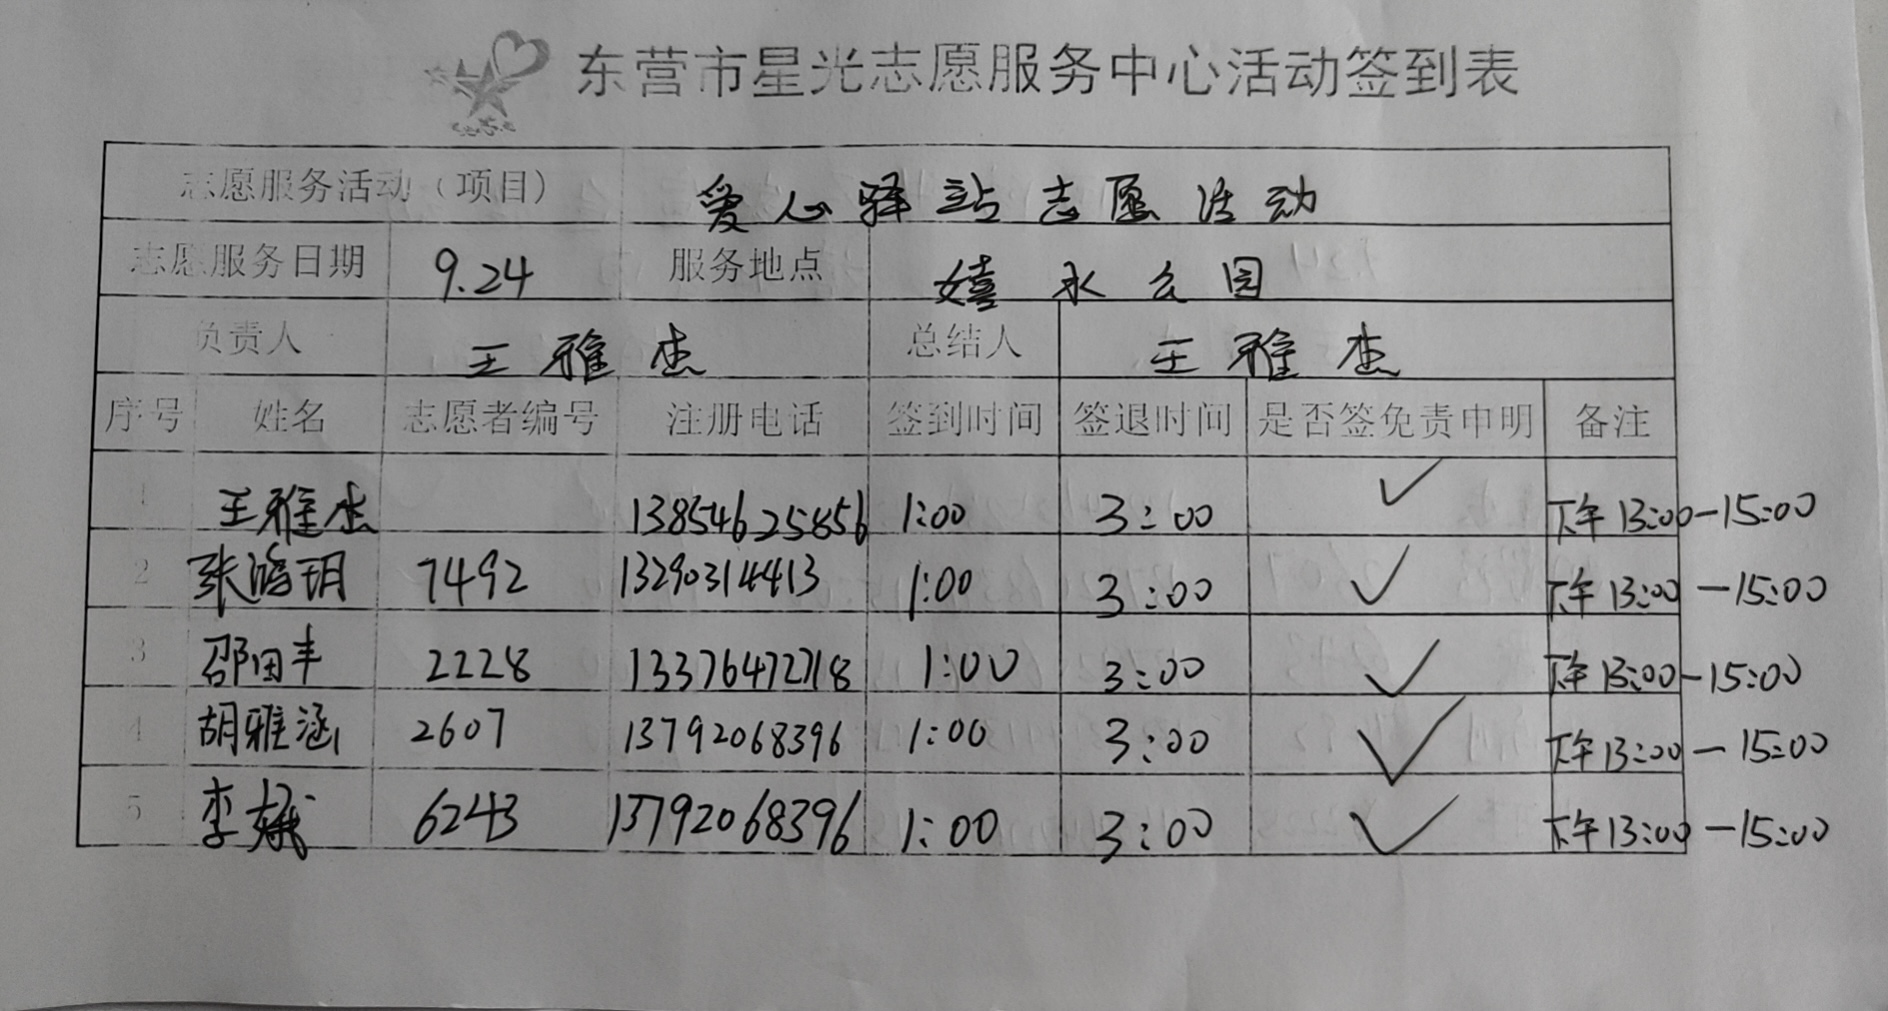 东营市星光志愿服务中心活动签到表
志愿服务活动（项目） 爱心驿站志愿活动
志愿服务日期 9.24 服务地点 嬉水公园
负责人 王雅杰 总结人 王雅杰
序号 姓名 志愿者编号 注册电话 签到时间 签退时间 是否签免责申明 备注
1 王雅杰 13854625856 1:00 3:00 ✓ 下午13:00-15:00
2 张鸿玥 7492 13290314413 1:00 3:00 ✓ 下午13:00-15:00
3 邵田丰 2228 13376472718 1:00 3:00 ✓ 下午13:00-15:00
4 胡雅涵 2607 13792068396 1:00 3:00 ✓ 下午13:00-15:00
5 李娥 6243 13792068396 1:00 3:00 ✓ 下午13:00-15:00